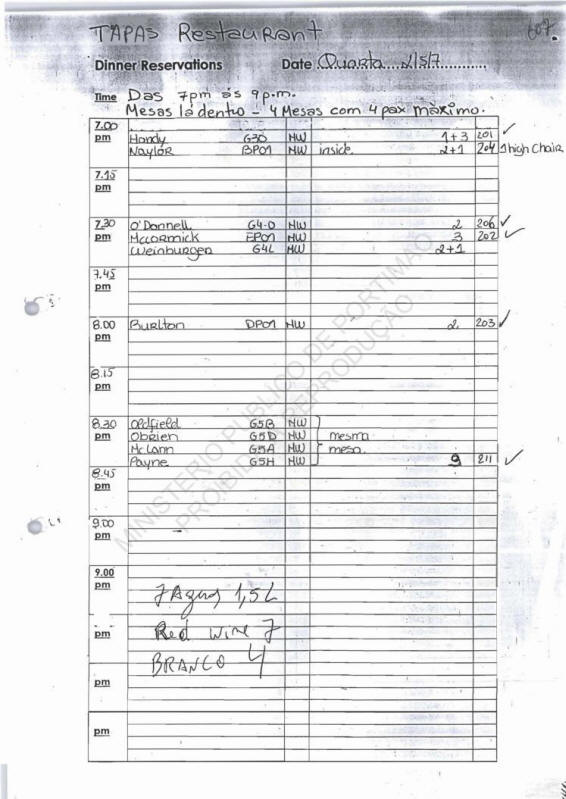 TAPAS Restaurant
607.
Dinner Reservations Date Quarta 2/5/7
Time Das 7pm ás 9p.m.
Mesas lá dentro - 4 Mesas com 4 pax màximo.
7.00
pm Handy G30 MW 1+3 201 ✓
Naylor BP01 MW inside. 2+1 204 1 high Chair
7.15
pm
7.30 O'Donnell G4-O MW 2 206 ✓
pm McCormick EP01 MW 3 202 ✓
Weinburger G4L MW 2+1
7.45
pm
8.00 Burlton DP01 MW 2. 203 ✓
pm
8.15
pm
8.30 Oldfield G5B MW
pm Obrien G5D MW mesma
Mc Cann G5A MW mesa.
Payne G5H MW 9 211 ✓
8.45
pm
9.00
pm
9.00
pm
7 Aguas 1,5L
pm Red wine 7
BRANCO 4
pm
pm
MINISTÉRIO PÚBLICO DE PORTIMÃO
PROIBIDA A REPRODUÇÃO